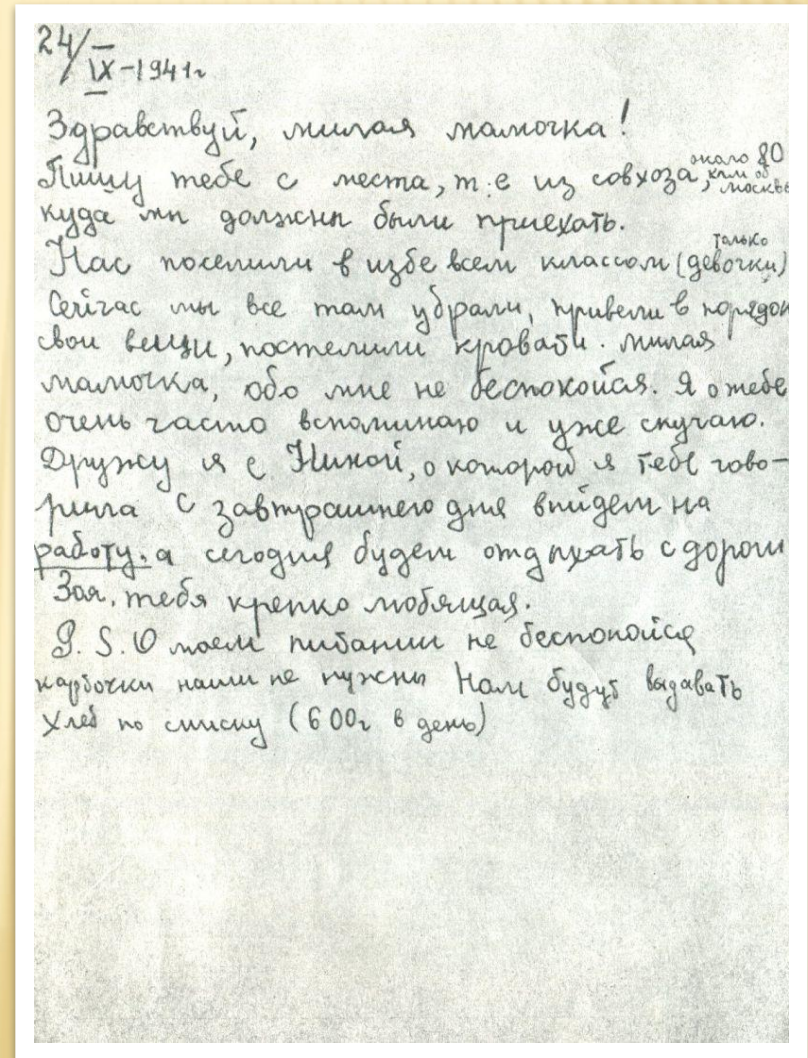 24/IX-1941г
Здравствуй, милая мамочка!
Пишу тебе с места, т.е из совхоза, около 80 клм от москвы
куда мы должны были приехать.
Нас поселили в избе всем классом (только девочки)
Сейчас мы все там убрали, привели в порядок
свои вещи, постелили кровати. милая
мамочка, обо мне не беспокойся. Я о тебе
очень часто вспоминаю и уже скучаю.
Дружу я с Ниной, о которой я тебе гово-
рила С завтрашнего дня выйдем на
работу. а сегодня будем отдыхать с дороги
Зоя, тебя крепко любящая.
P.S. О моем питании не беспокойся
карточки наши не нужны Нам будут выдавать
хлеб по списку (600г в день)